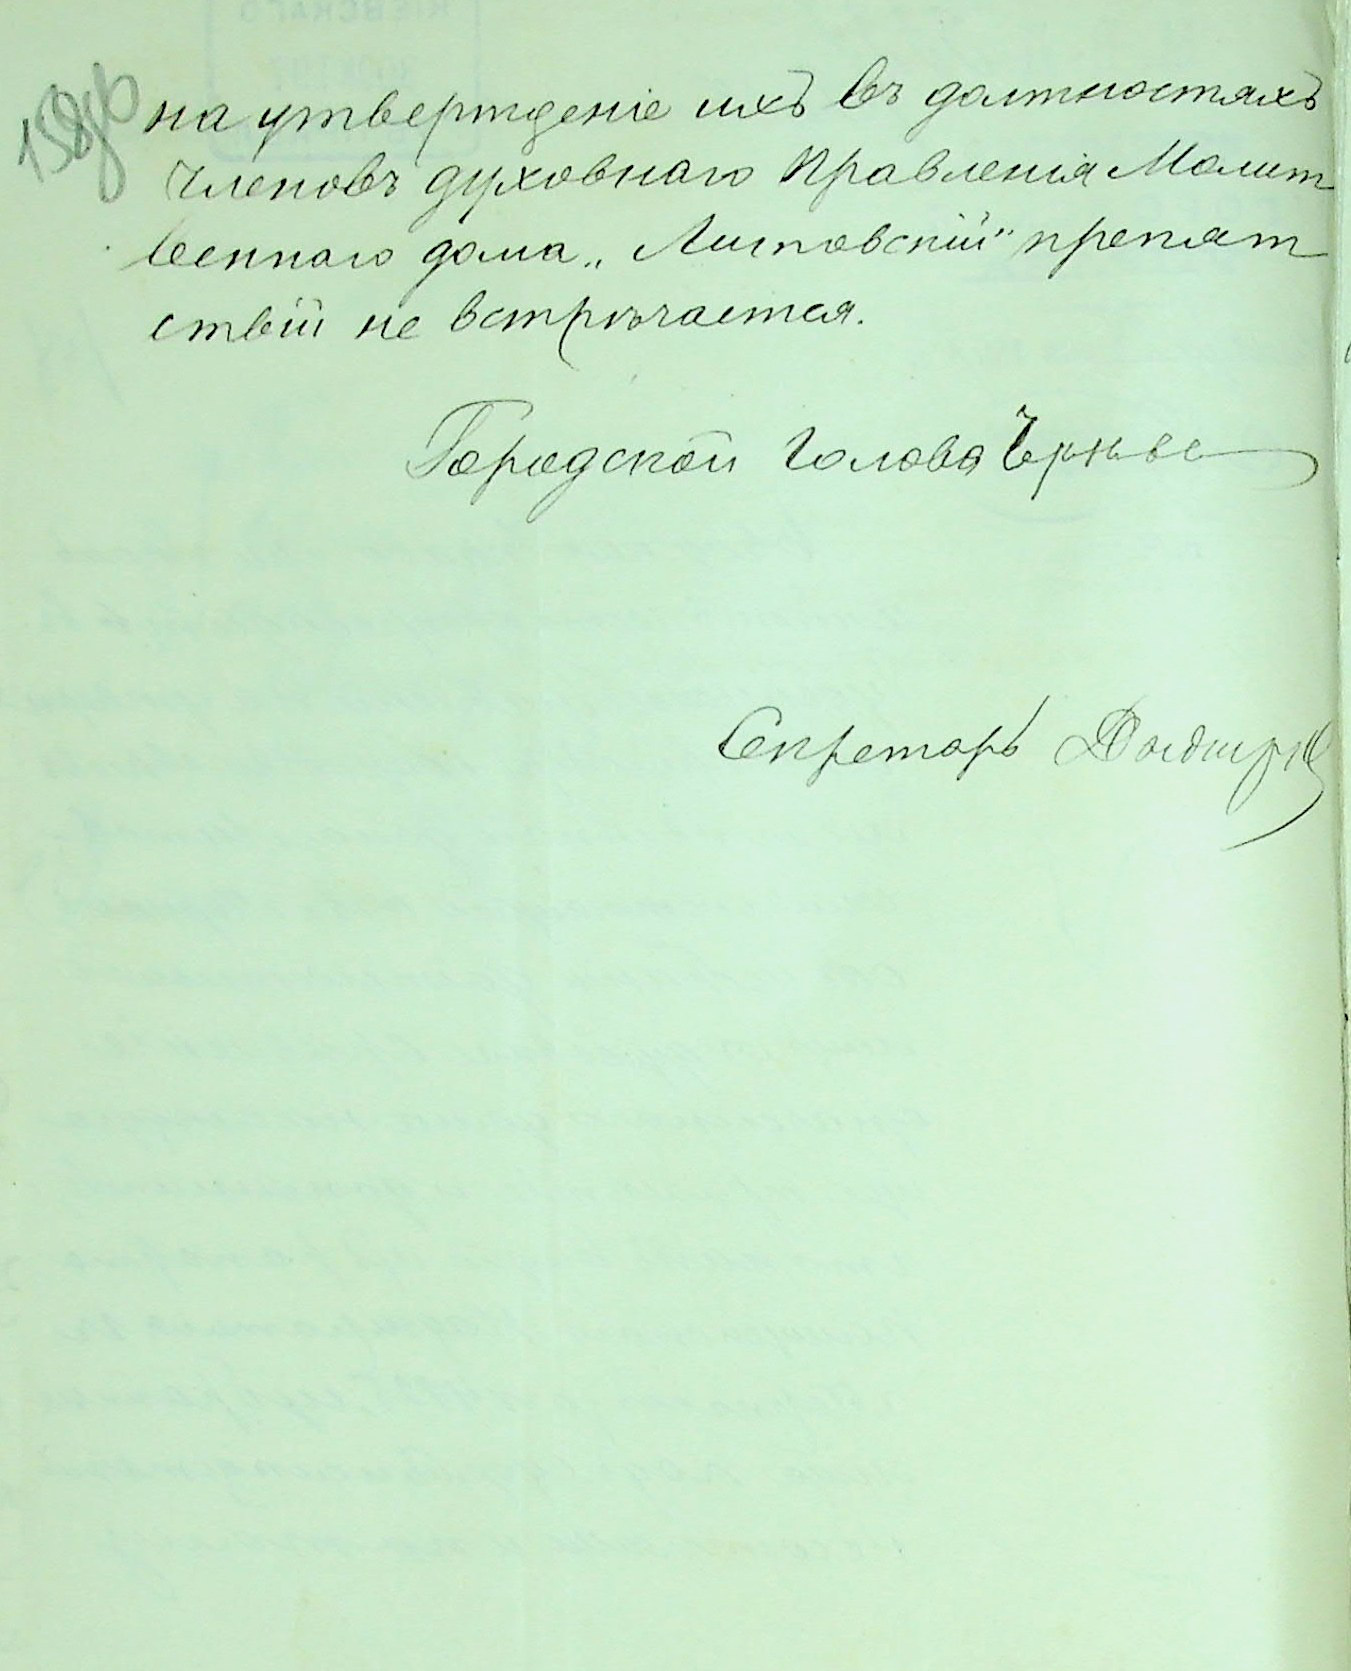 158об
на утвержденіе ихъ въ должностяхъ
членовъ духовнаго Правленія Молит
веннаго дома „Литовскій" препят
ствій не встрѣчается.
Городской Голова
Секретарь